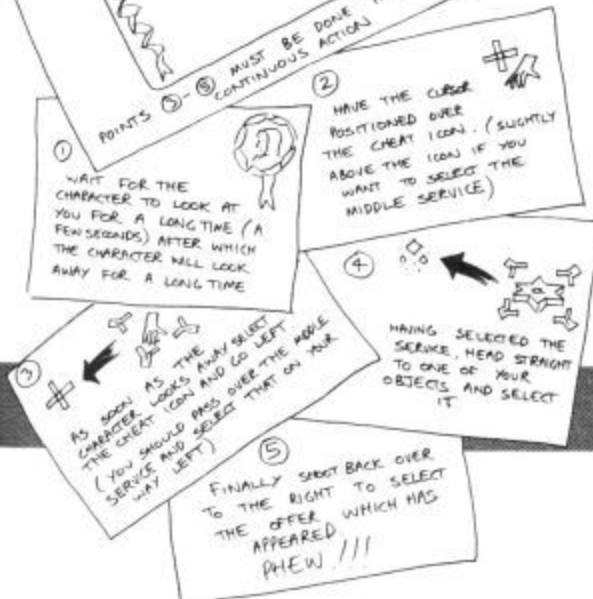 POINTS ③-⑤ MUST BE DONE
CONTINUOUS ACTION
①
WAIT FOR THE
CHARACTER TO LOOK AT
YOU FOR A LONG TIME (A
FEW SECONDS) AFTER WHICH
THE CHARACTER WILL LOOK
AWAY FOR A LONG TIME
②
HAVE THE CURSOR
POSITIONED OVER
THE CHEAT ICON. (SLIGHTLY
ABOVE THE ICON IF YOU
WANT TO SELECT THE
MIDDLE SERVICE)
③
AS SOON AS THE
CHARACTER LOOKS AWAY SELECT
THE CHEAT ICON AND GO LEFT
(YOU SHOULD PASS OVER THE MIDDLE
SERVICE AND SELECT THAT ON YOUR
WAY LEFT)
④
HAVING SELECTED THE
SERVICE, HEAD STRAIGHT
TO ONE OF YOUR
OBJECTS AND SELECT
IT
⑤
FINALLY SHOOT BACK OVER
TO THE RIGHT TO SELECT
THE OFFER WHICH HAS
APPEARED
PHEW!!!